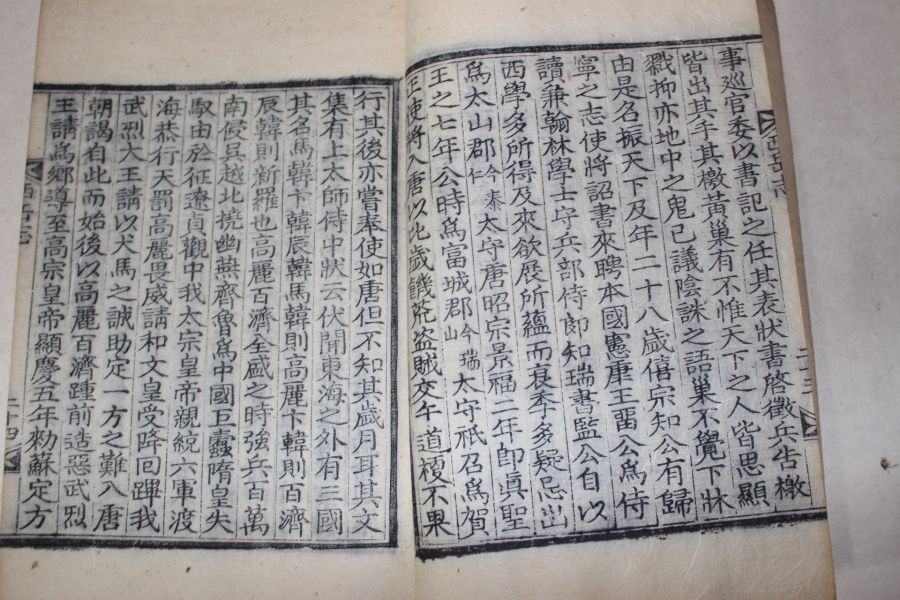 西岳志 二十三
事巡官委以書記之任其表狀書啓徵兵告檄
皆出其手其檄黃巢有不惟天下之人皆思顯
戮抑亦地中之鬼已議陰誅之語巢不覺下牀
由是名振天下及年二十八歲僖宗知公有歸
寧之志使將詔書來聘本國憲康王留公爲侍
讀兼翰林學士守兵部侍郎知瑞書監公自以
西學多所得及來欲展所蘊而衰季多疑忌出
爲太山郡今泰仁太守唐昭宗景福二年卽眞聖
王之七年公時爲富城郡今瑞山太守祇召爲賀
正使將入唐以比歲饑荒盜賊交午道梗不果
行其後亦嘗奉使如唐但不知其歲月耳其文
集有上太師侍中狀云伏聞東海之外有三國
其名馬韓卞韓辰韓馬韓則高麗卞韓則百濟
辰韓則新羅也高麗百濟全盛之時強兵百萬
南侵吳越北撓幽燕齊魯爲中國巨蠹隋皇失
馭由於征遼貞觀中我太宗皇帝親統六軍渡
海恭行天罰高麗畏威請和文皇受降回蹕我
武烈大王請以犬馬之誠助定一方之難入唐
朝謁自此而始後以高麗百濟踵前造惡武烈
王請爲鄕導至高宗皇帝顯慶五年勅蘇定方
二十四